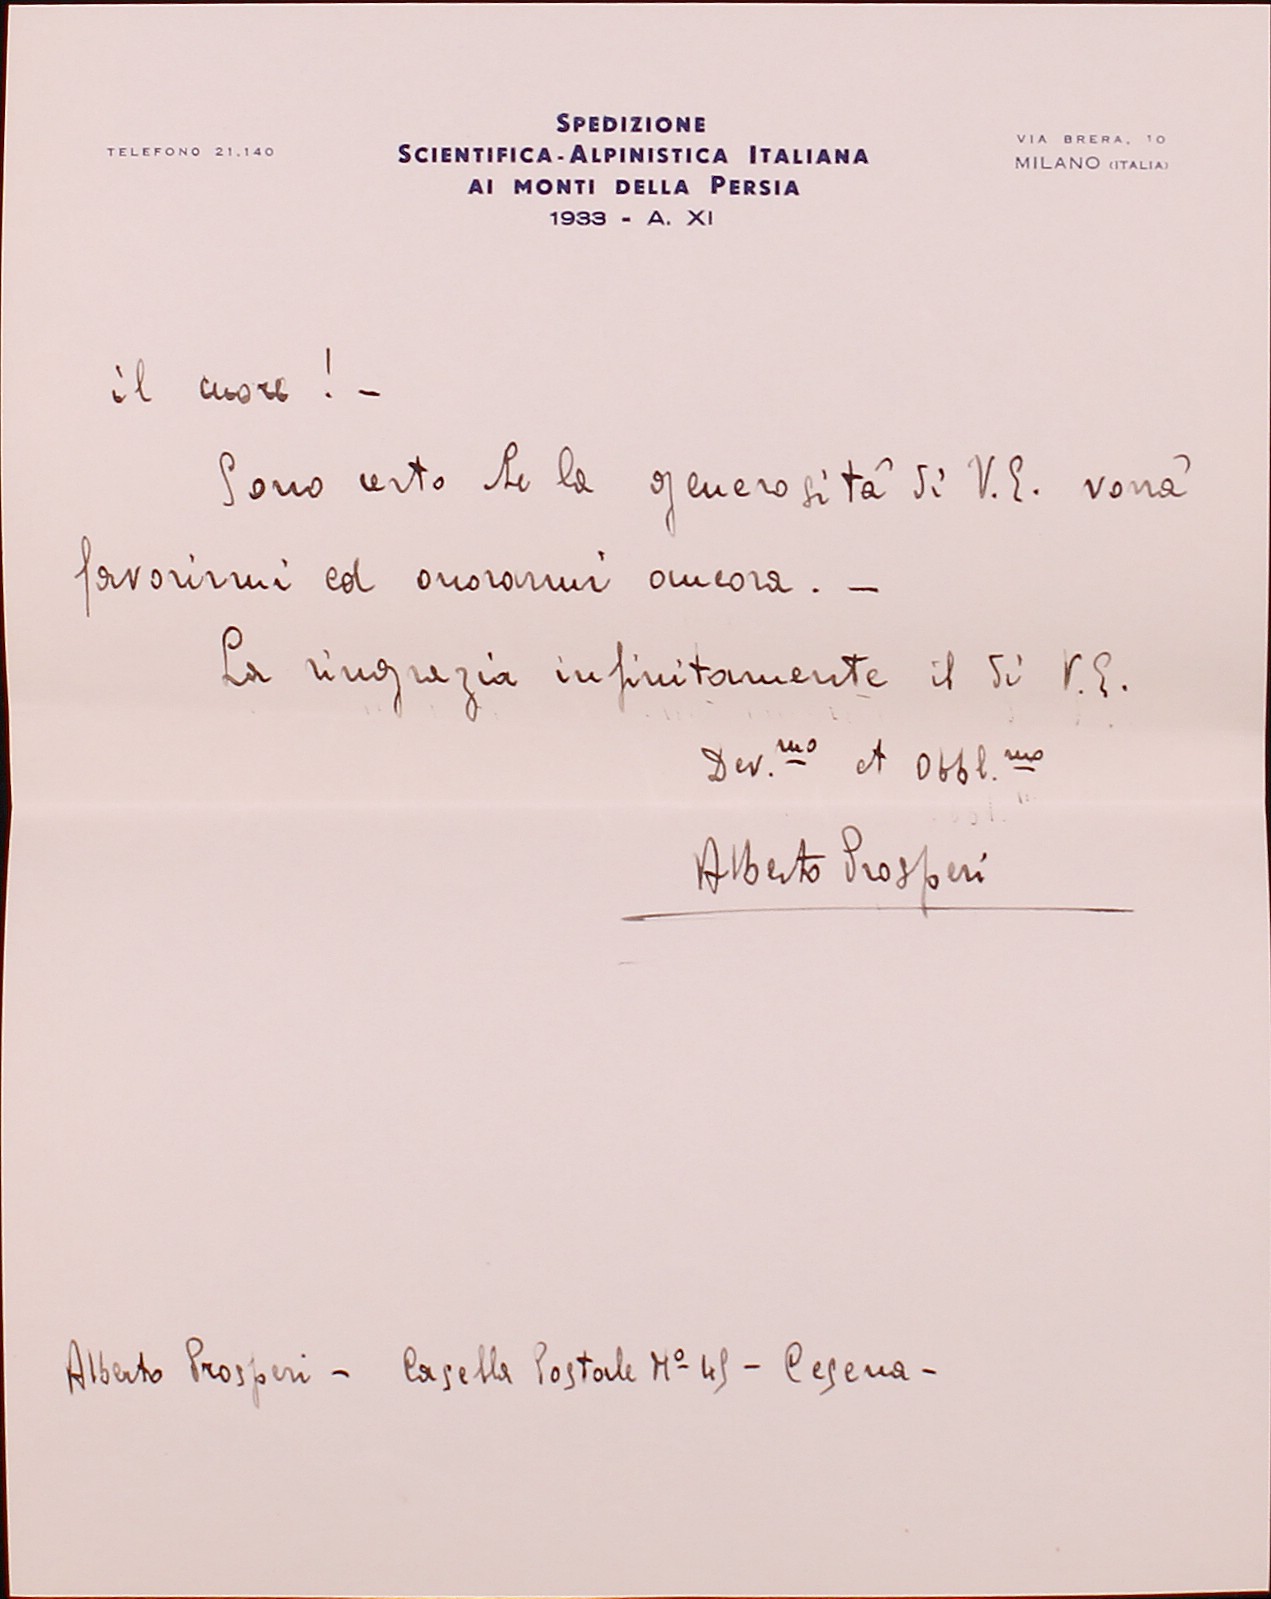 TELEFONO 21.140
SPEDIZIONE
SCIENTIFICA-ALPINISTICA ITALIANA
AI MONTI DELLA PERSIA
1933 - A. XI
VIA BRERA, 10
MILANO (ITALIA)
il cuore ! –
Sono certo che la generosità di V.E. vorrà
favorirmi ed onorarmi ancora. –
La ringrazia infinitamente il di V.E.
Dev.mo et Obbl.mo
Alberto Prosperi
Alberto Prosperi – Casella Postale Nº 45 – Cesena –